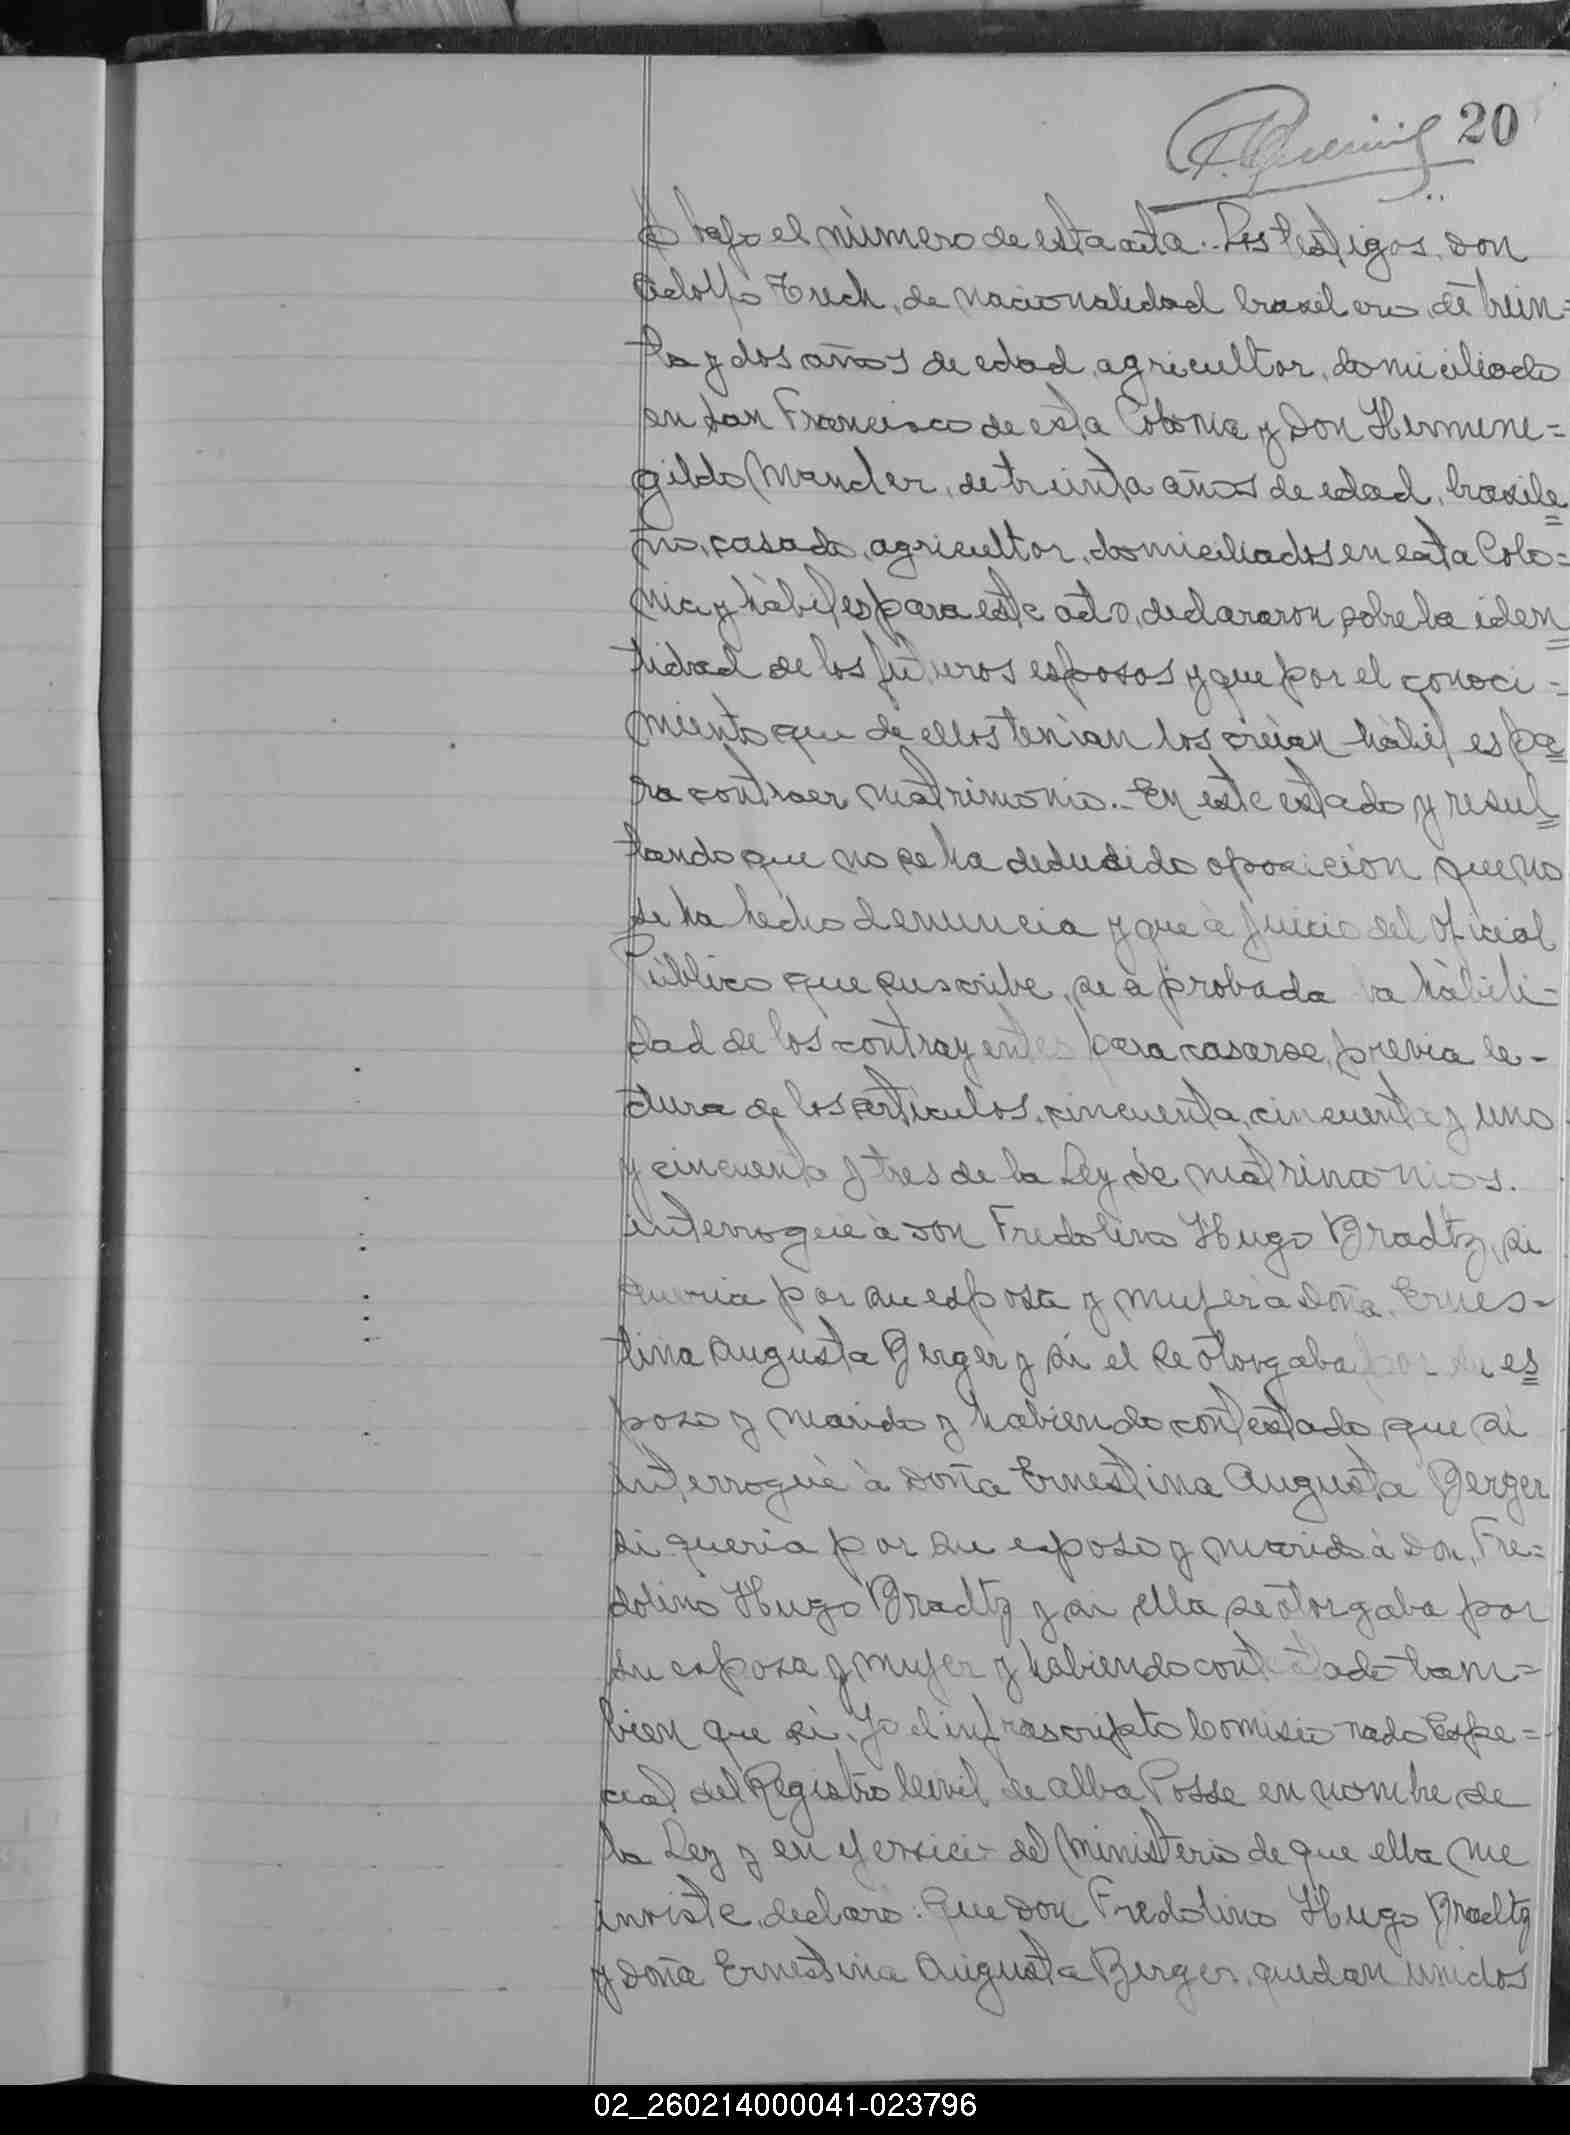 20
o bajo el número de esta acta. Los testigos, don
Adolfo Trech, de nacionalidad brasilero, de trein=
ta y dos años de edad, agricultor, domiciliado
en San Francisco de esta Colonia y Don Hermene=
gildo Wander, de treinta años de edad, brasile=
no, casado, agricultor, domiciliados en esta Colo=
nia y hábiles para este acto, declararon sobre la iden=
tidad de los futuros esposos y que por el conoci=
miento que de ellos tenian los creian hábiles pa=
ra contraer matrimonio.- En este estado y resul=
tando que no se ha deducido oposición que no
se ha hecho denuncia y que à juicio del Oficial
Público que suscribe, se a probada la hábili-
dad de los contrayentes para casarse, previa le-
ctura de los articulos, cincuenta, cincuenta y uno
y cincuenta y tres de la Ley de matrimonios.
interrogué à don Fredolino Hugo Bradtz, si
queria por su esposa y mujer a doña, Ernes-
tina Augusta Berger y si el se otorgaba por su es=
poso y marido y habiendo contestado que si
interrogué à doña Ernestina Augusta Berger
si queria por su esposo y marido à don, Fre=
dolino Hugo Bradtz y si ella se otorgaba por
su esposa y mujer y habiendo contestado tam=
bien que si. Yo el infrascripto Comisionado Espe=
cial del Registro Civil de Alba Posse en nombre de
la Ley y en ejersicio del Ministerio de que ella me
inviste, declaro: Que don Fredolino Hugo Bradtz
y doña Ernestina Augusta Berger, quedan unidos
02_260214000041-023796